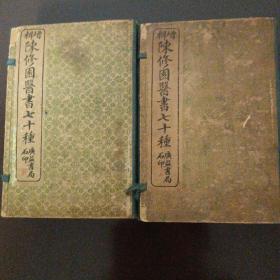 增輯
陳修園醫書七十種
廣益書局
石印
增輯
陳修園醫書七十種
廣益書局
石印